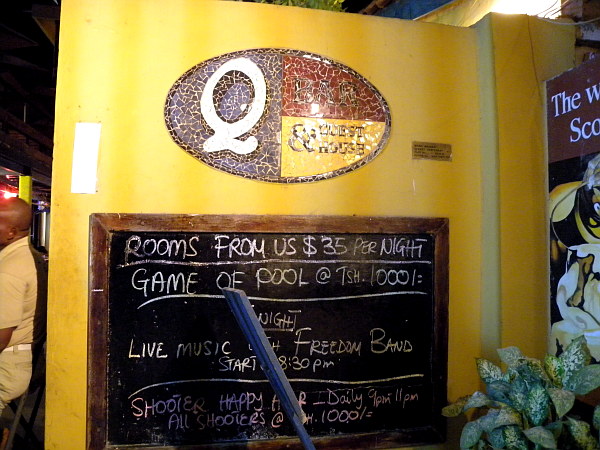 Q BAR
& GUEST
HOUSE
ROOMS FROM US $35 PER NIGHT
GAME OF POOL @ TSH. 1000/=
NIGHT
LIVE MUSIC FREEDOM BAND
START 8:30 pm
SHOOTER HAPPY Daily 9pm 11pm
ALL SHOOTERS @ TSH. 1000/=
The w
Sco